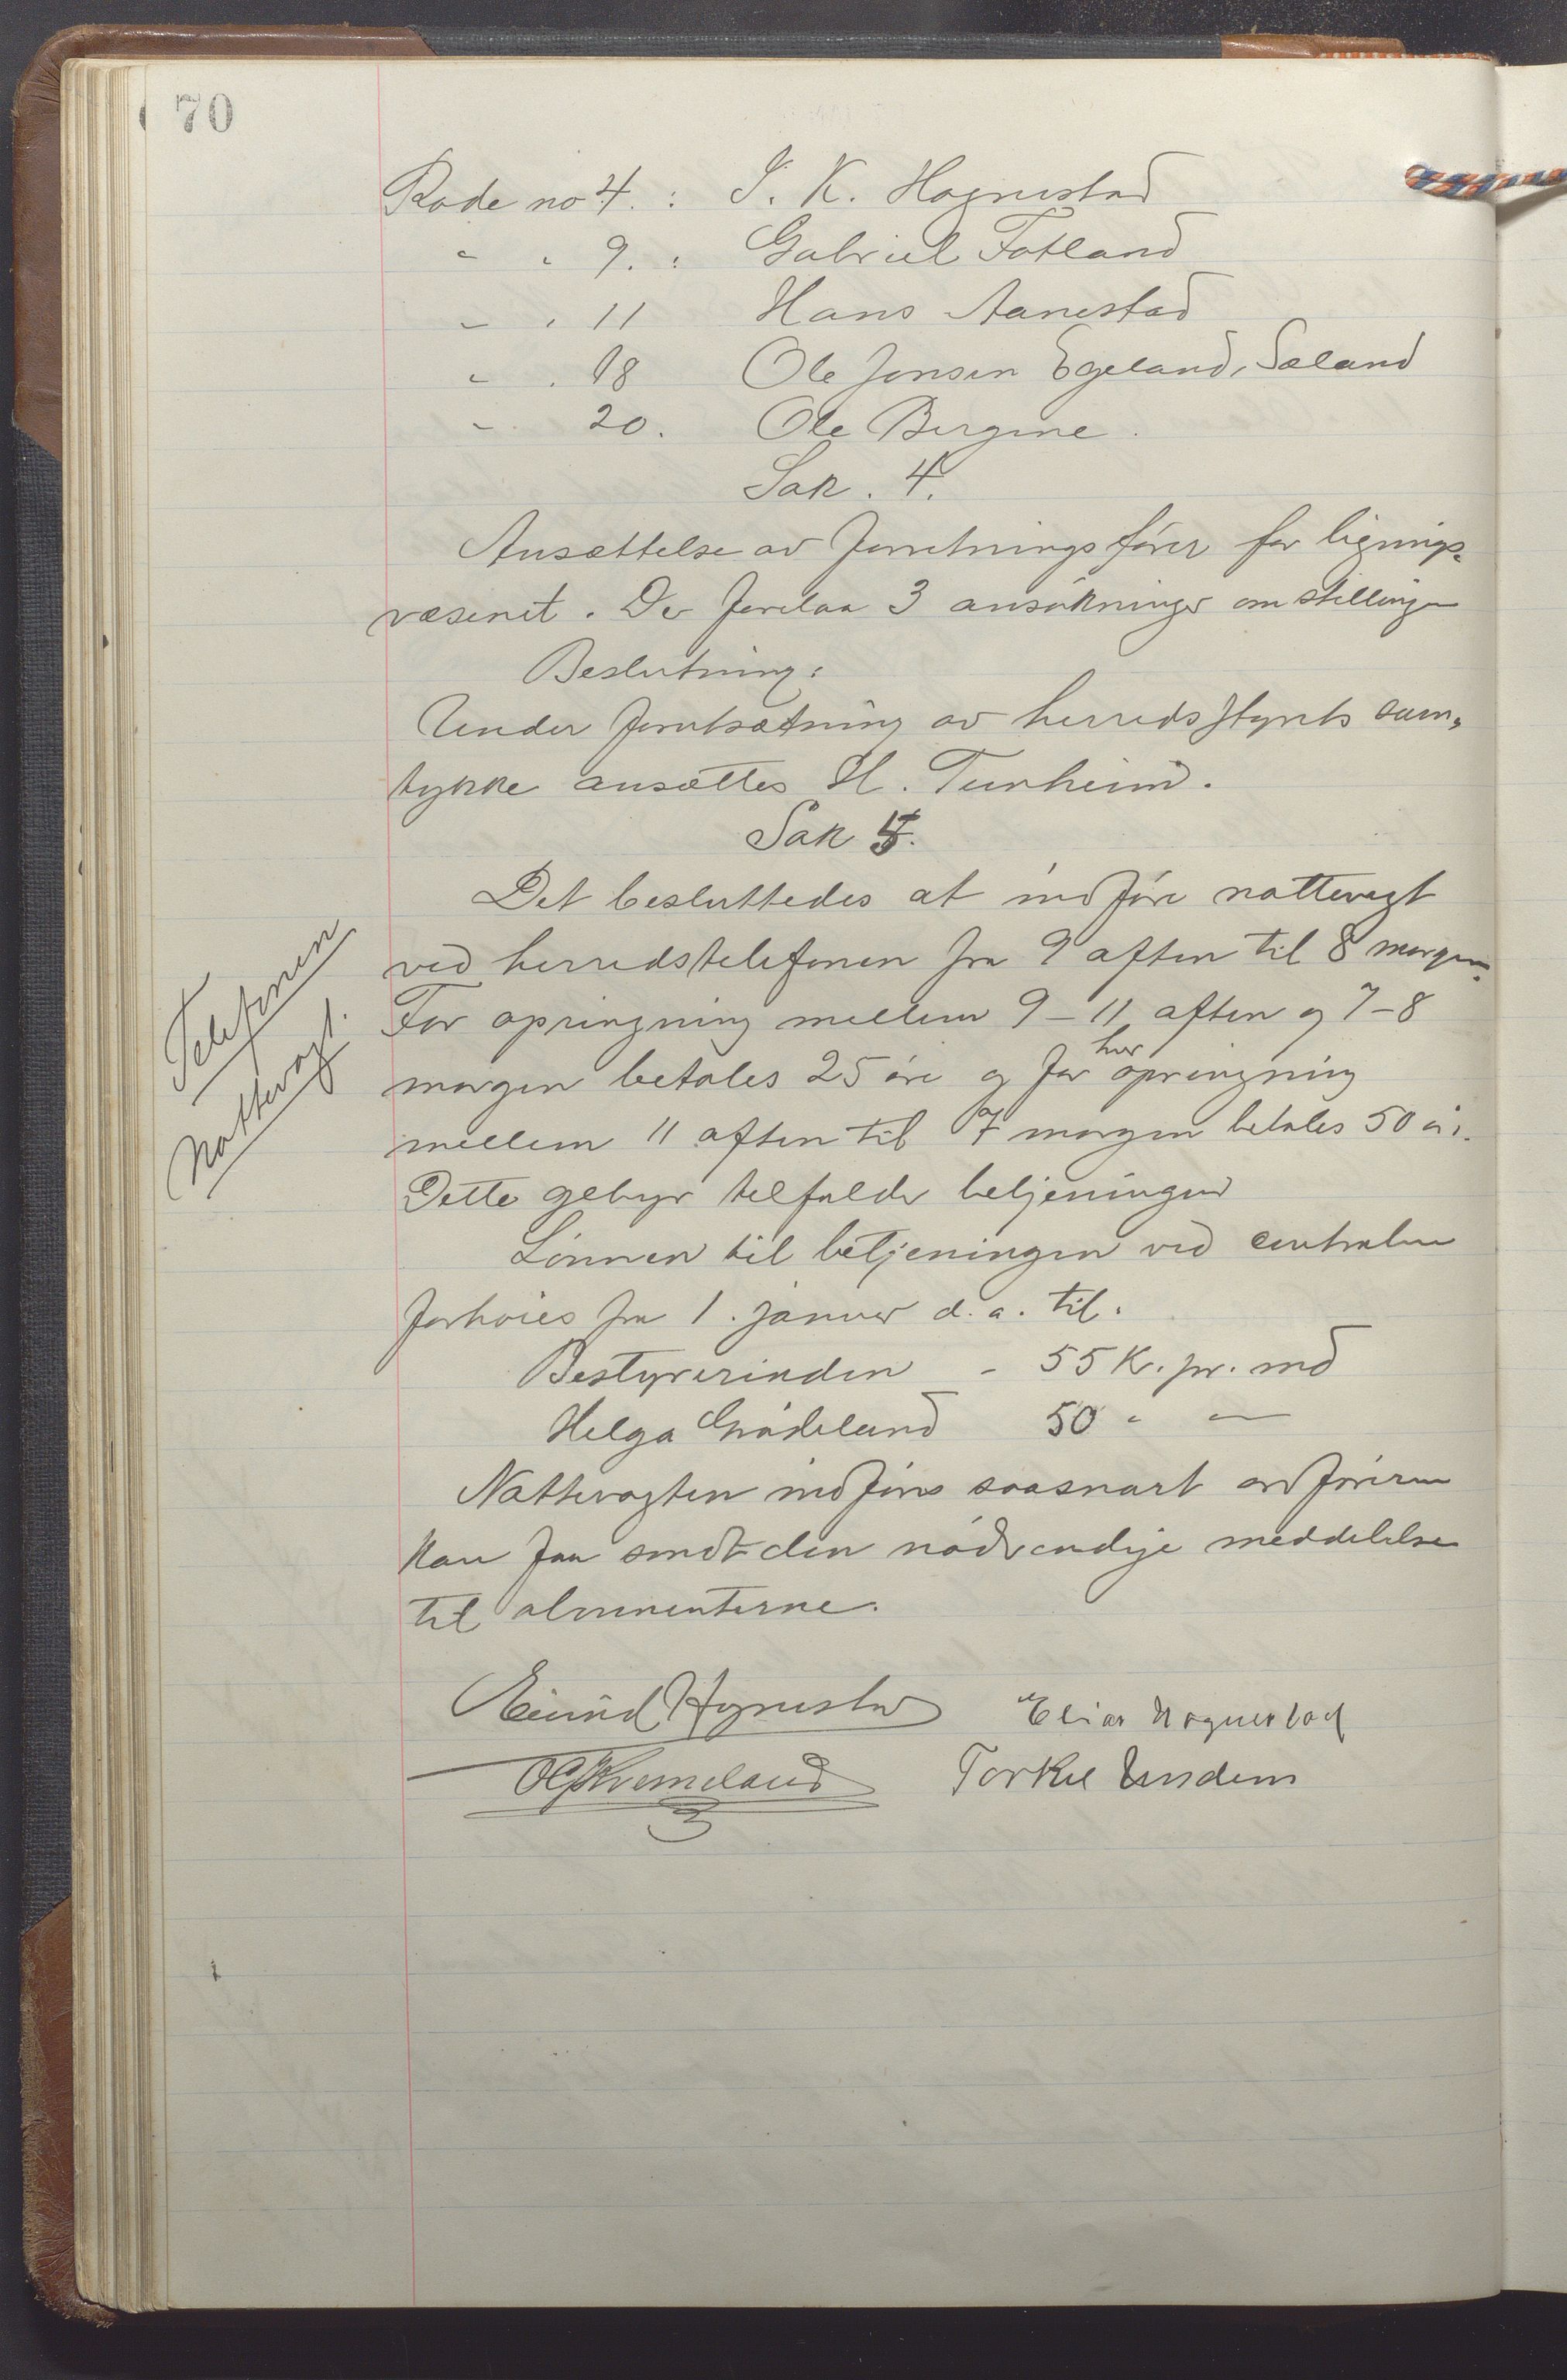 70
Rode no 4. : S. K. Hognestad
" " 9. : Gabriel Fotland
" " 11 Hans Aanestad
" " 18 Ole Jonsen Egeland, Sæland
" 20. Ole Bergene.
Sak. 4.
Ansættelse av forretningsfører for lignings-
væsenet. Der forelaa 3 ansøkninger om stillingen
Beslutning:
Under forutsætning av herredsstyrets sam-
tykke ansættes H. Tunheim.
Sak 5.
Det besluttedes at indføre nattevagt
ved herredstelefonen fra 9 aften til 8 morgen.
For opringning mellem 9-11 aften og 7-8
morgen betales 25 øre og for hver opringning
mellem 11 aften til 7 morgen betales 50 øre.
Dette gebyr tilfalder betjeningen
Lønnen til betjeningen ved centralen
forhøies fra 1. januar d.a. til:
Bestyrerinden - 55 Kr. pr. md
Helga Grødeland 50 " "
Nattevagten indføres saasnart ordføreren
kan faa sendt den nødvendige meddelelse
til abonnenterne.
Telefonen
Nattevagt.
Eivind Hognestad Elias Hognestad
O G Kverneland Torkel Undem